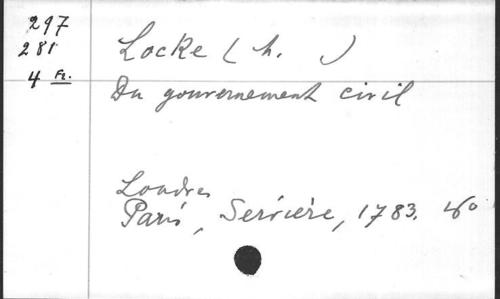 297
281
4 Fr.
Locke (h. )
Du gouvernement civil
Londres
Paris, Servière, 1783.